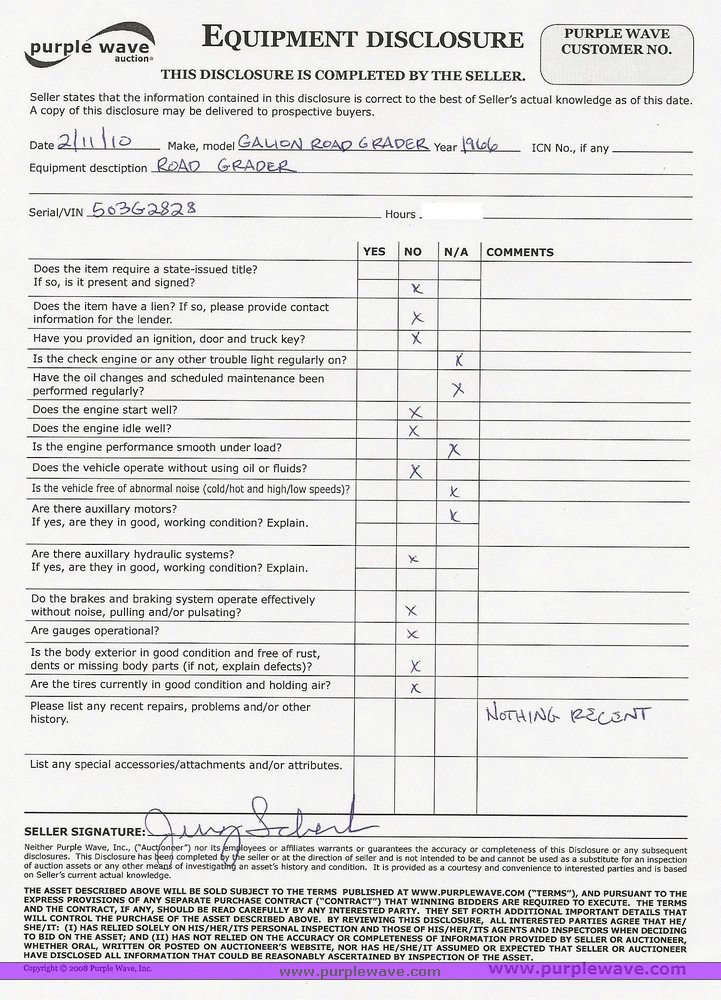 purple wave
auction®
EQUIPMENT DISCLOSURE
PURPLE WAVE
CUSTOMER NO.
THIS DISCLOSURE IS COMPLETED BY THE SELLER.
Seller states that the information contained in this disclosure is correct to the best of Seller's actual knowledge as of this date.
A copy of this disclosure may be delivered to prospective buyers.
Date 2/11/10 Make, model GALION ROAD GRADER Year 1966 ICN No., if any
Equipment desctiption ROAD GRADER
Serial/VIN 503G2828 Hours
YES NO N/A COMMENTS
Does the item require a state-issued title?
If so, is it present and signed? X
Does the item have a lien? If so, please provide contact
information for the lender. X
Have you provided an ignition, door and truck key? X
Is the check engine or any other trouble light regularly on? X
Have the oil changes and scheduled maintenance been
performed regularly? X
Does the engine start well? X
Does the engine idle well? X
Is the engine performance smooth under load? X
Does the vehicle operate without using oil or fluids? X
Is the vehicle free of abnormal noise (cold/hot and high/low speeds)? X
Are there auxillary motors? X
If yes, are they in good, working condition? Explain.
Are there auxillary hydraulic systems? X
If yes, are they in good, working condition? Explain.
Do the brakes and braking system operate effectively
without noise, pulling and/or pulsating? X
Are gauges operational? X
Is the body exterior in good condition and free of rust,
dents or missing body parts (if not, explain defects)? X
Are the tires currently in good condition and holding air? X
Please list any recent repairs, problems and/or other
history. NOTHING RECENT
List any special accessories/attachments and/or attributes.
SELLER SIGNATURE:
Neither Purple Wave, Inc., ("Auctioneer") nor its employees or affiliates warrants or guarantees the accuracy or completeness of this Disclosure or any subsequent
disclosures. This Disclosure has been completed by the seller or at the direction of seller and is not intended to be and cannot be used as a substitute for an inspection
of auction assets or any other means of investigating an asset's history and condition. It is provided as a courtesy and convenience to interested parties and is based
on Seller's current actual knowledge.
THE ASSET DESCRIBED ABOVE WILL BE SOLD SUBJECT TO THE TERMS PUBLISHED AT WWW.PURPLEWAVE.COM ("TERMS"), AND PURSUANT TO THE
EXPRESS PROVISIONS OF ANY SEPARATE PURCHASE CONTRACT ("CONTRACT") THAT WINNING BIDDERS ARE REQUIRED TO EXECUTE. THE TERMS
AND THE CONTRACT, IF ANY, SHOULD BE READ CAREFULLY BY ANY INTERESTED PARTY. THEY SET FORTH ADDITIONAL IMPORTANT DETAILS THAT
WILL CONTROL THE PURCHASE OF THE ASSET DESCRIBED ABOVE. BY REVIEWING THIS DISCLOSURE, ALL INTERESTED PARTIES AGREE THAT HE/
SHE/IT: (I) HAS RELIED SOLELY ON HIS/HER/ITS PERSONAL INSPECTION AND THOSE OF HIS/HER/ITS AGENTS AND INSPECTORS WHEN DECIDING
TO BID ON THE ASSET; AND (II) HAS NOT RELIED ON THE ACCURACY OR COMPLETENESS OF INFORMATION PROVIDED BY SELLER OR AUCTIONEER,
WHETHER ORAL, WRITTEN OR POSTED ON AUCTIONEER'S WEBSITE, NOR HAS HE/SHE/IT ASSUMED OR EXPECTED THAT SELLER OR AUCTIONEER
HAVE DISCLOSED ALL INFORMATION THAT COULD BE REASONABLY ASCERTAINED BY INSPECTION OF THE ASSET.
Copyright © 2008 Purple Wave, Inc. www.purplewave.com www.purplewave.com